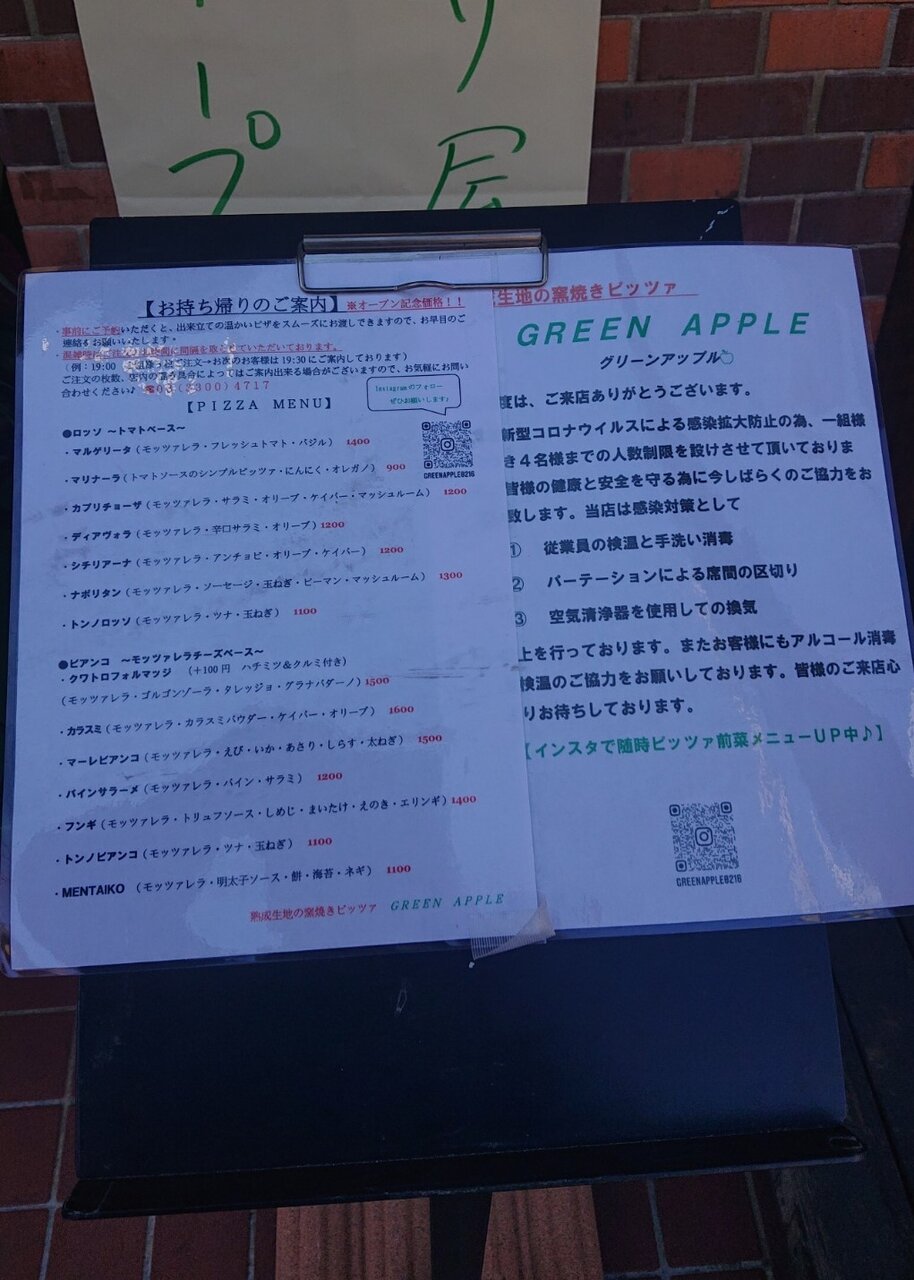 ープ
り
屋
【お持ち帰りのご案内】※オープン記念価格！！
・事前にご予約いただくと、出来立ての温かいピザをスムーズにお渡しできますので、お早目のご
連絡をお願いいたします。
・混雑時はご注文
間隔を取らせていただいております。
（例：19:00
ご注文→お次のお客様は19:30にご案内しております）
ご注文の枚数、店内の
具合によってはご案内出来る場合がございますので、お気軽にお問い
合わせください♪
(3300)4717
Instagramのフォロー
ぜひお願いします♪
【PIZZA MENU】
GREENAPPLE0216
●ロッソ ～トマトベース～
・マルゲリータ（モッツァレラ・フレッシュトマト・バジル） 1400
・マリナーラ（トマトソースのシンプルピッツァ・にんにく・オレガノ） 900
・カプリチョーザ（モッツァレラ・サラミ・オリーブ・ケイパー・マッシュルーム） 1200
・ディアヴォラ（モッツァレラ・辛口サラミ・オリーブ）1200
・シチリアーナ（モッツァレラ・アンチョビ・オリーブ・ケイパー） 1200
・ナポリタン（モッツァレラ・ソーセージ・玉ねぎ・ピーマン・マッシュルーム） 1300
・トンノロッソ（モッツァレラ・ツナ・玉ねぎ） 1100
●ビアンコ ～モッツァレラチーズベース～
・クワトロフォルマッジ （+100円 ハチミツ＆クルミ付き）
（モッツァレラ・ゴルゴンゾーラ・タレッジョ・グラナパダーノ）1500
・カラスミ（モッツァレラ・カラスミパウダー・ケイパー・オリーブ） 1600
・マーレビアンコ（モッツァレラ・えび・いか・あさり・しらす・太ねぎ） 1500
・パインサラーメ（モッツァレラ・パイン・サラミ） 1200
・フンギ（モッツァレラ・トリュフソース・しめじ・まいたけ・えのき・エリンギ）1400
・トンノビアンコ（モッツァレラ・ツナ・玉ねぎ） 1100
・MENTAIKO （モッツァレラ・明太子ソース・餅・海苔・ネギ） 1100
熟成生地の窯焼きピッツァ GREEN APPLE
生地の窯焼きピッツァ
GREEN APPLE
グリーンアップル
度は、ご来店ありがとうございます。
新型コロナウイルスによる感染拡大防止の為、一組様
き４名様までの人数制限を設けさせて頂いておりま
皆様の健康と安全を守る為に今しばらくのご協力をお
致します。当店は感染対策として
① 従業員の検温と手洗い消毒
② パーテーションによる席間の区切り
③ 空気清浄器を使用しての換気
上を行っております。またお客様にもアルコール消毒
検温のご協力をお願いしております。皆様のご来店心
りお待ちしております。
【インスタで随時ピッツァ前菜メニューＵＰ中♪】
GREENAPPLE0216